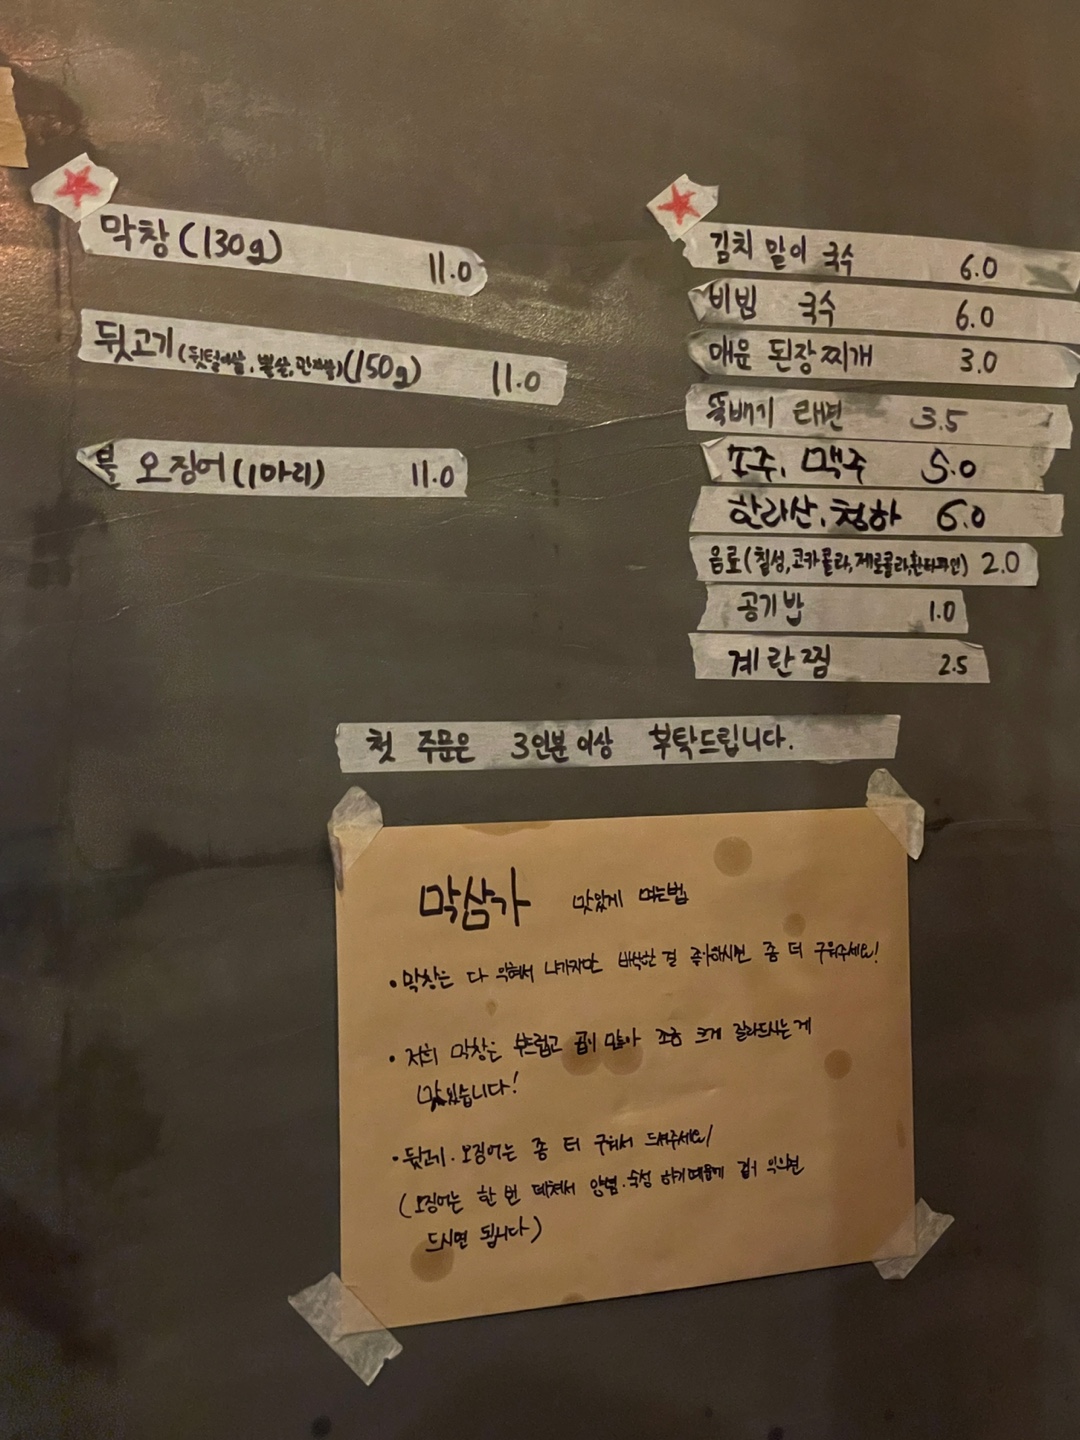 막창 (130g) 11.0
뒷고기 (뒷덜미살, 뽈살, 관자살) (150g) 11.0
불 오징어 (1마리) 11.0
김치 말이 국수 6.0
비빔 국수 6.0
매운 된장찌개 3.0
뚝배기 라면 3.5
소주, 맥주 5.0
한라산, 청하 6.0
음료 (칠성, 코카콜라, 제로콜라, 환타파인) 2.0
공기밥 1.0
계란찜 2.5
첫 주문은 3인분 이상 부탁드립니다.
막삼가 맛있게 먹는법
• 막창은 다 익혀서 나가지만 바싹한 걸 좋아하시면 좀 더 구워주세요!
• 저희 막창은 부드럽고 곱이 많아 조금 크게 잘라드시는게
맛있습니다!
• 뒷고기. 오징어는 좀 더 구워서 드셔주세요!
(오징어는 한 번 데쳐서 양념.숙성 하기때문에 겉이 익으면
드시면 됩니다)